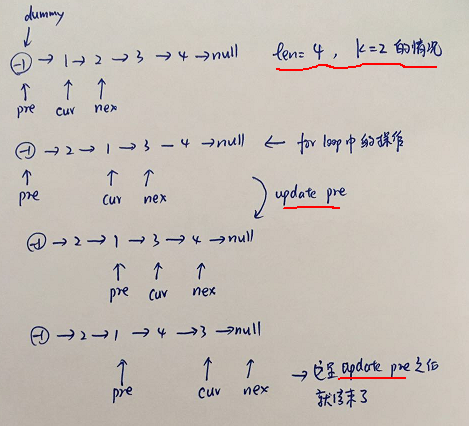 dummy
-1 → 1 → 2 → 3 → 4 → null
len=4, k=2 的情况
pre cur nex
-1 → 2 → 1 → 3 – 4 → null ← for loop中的操作
pre cur nex
update pre
-1 → 2 → 1 → 3 → 4 → null
pre cur nex
-1 → 2 → 1 → 4 → 3 → null
pre cur nex
→ update pre 之后
就结束了